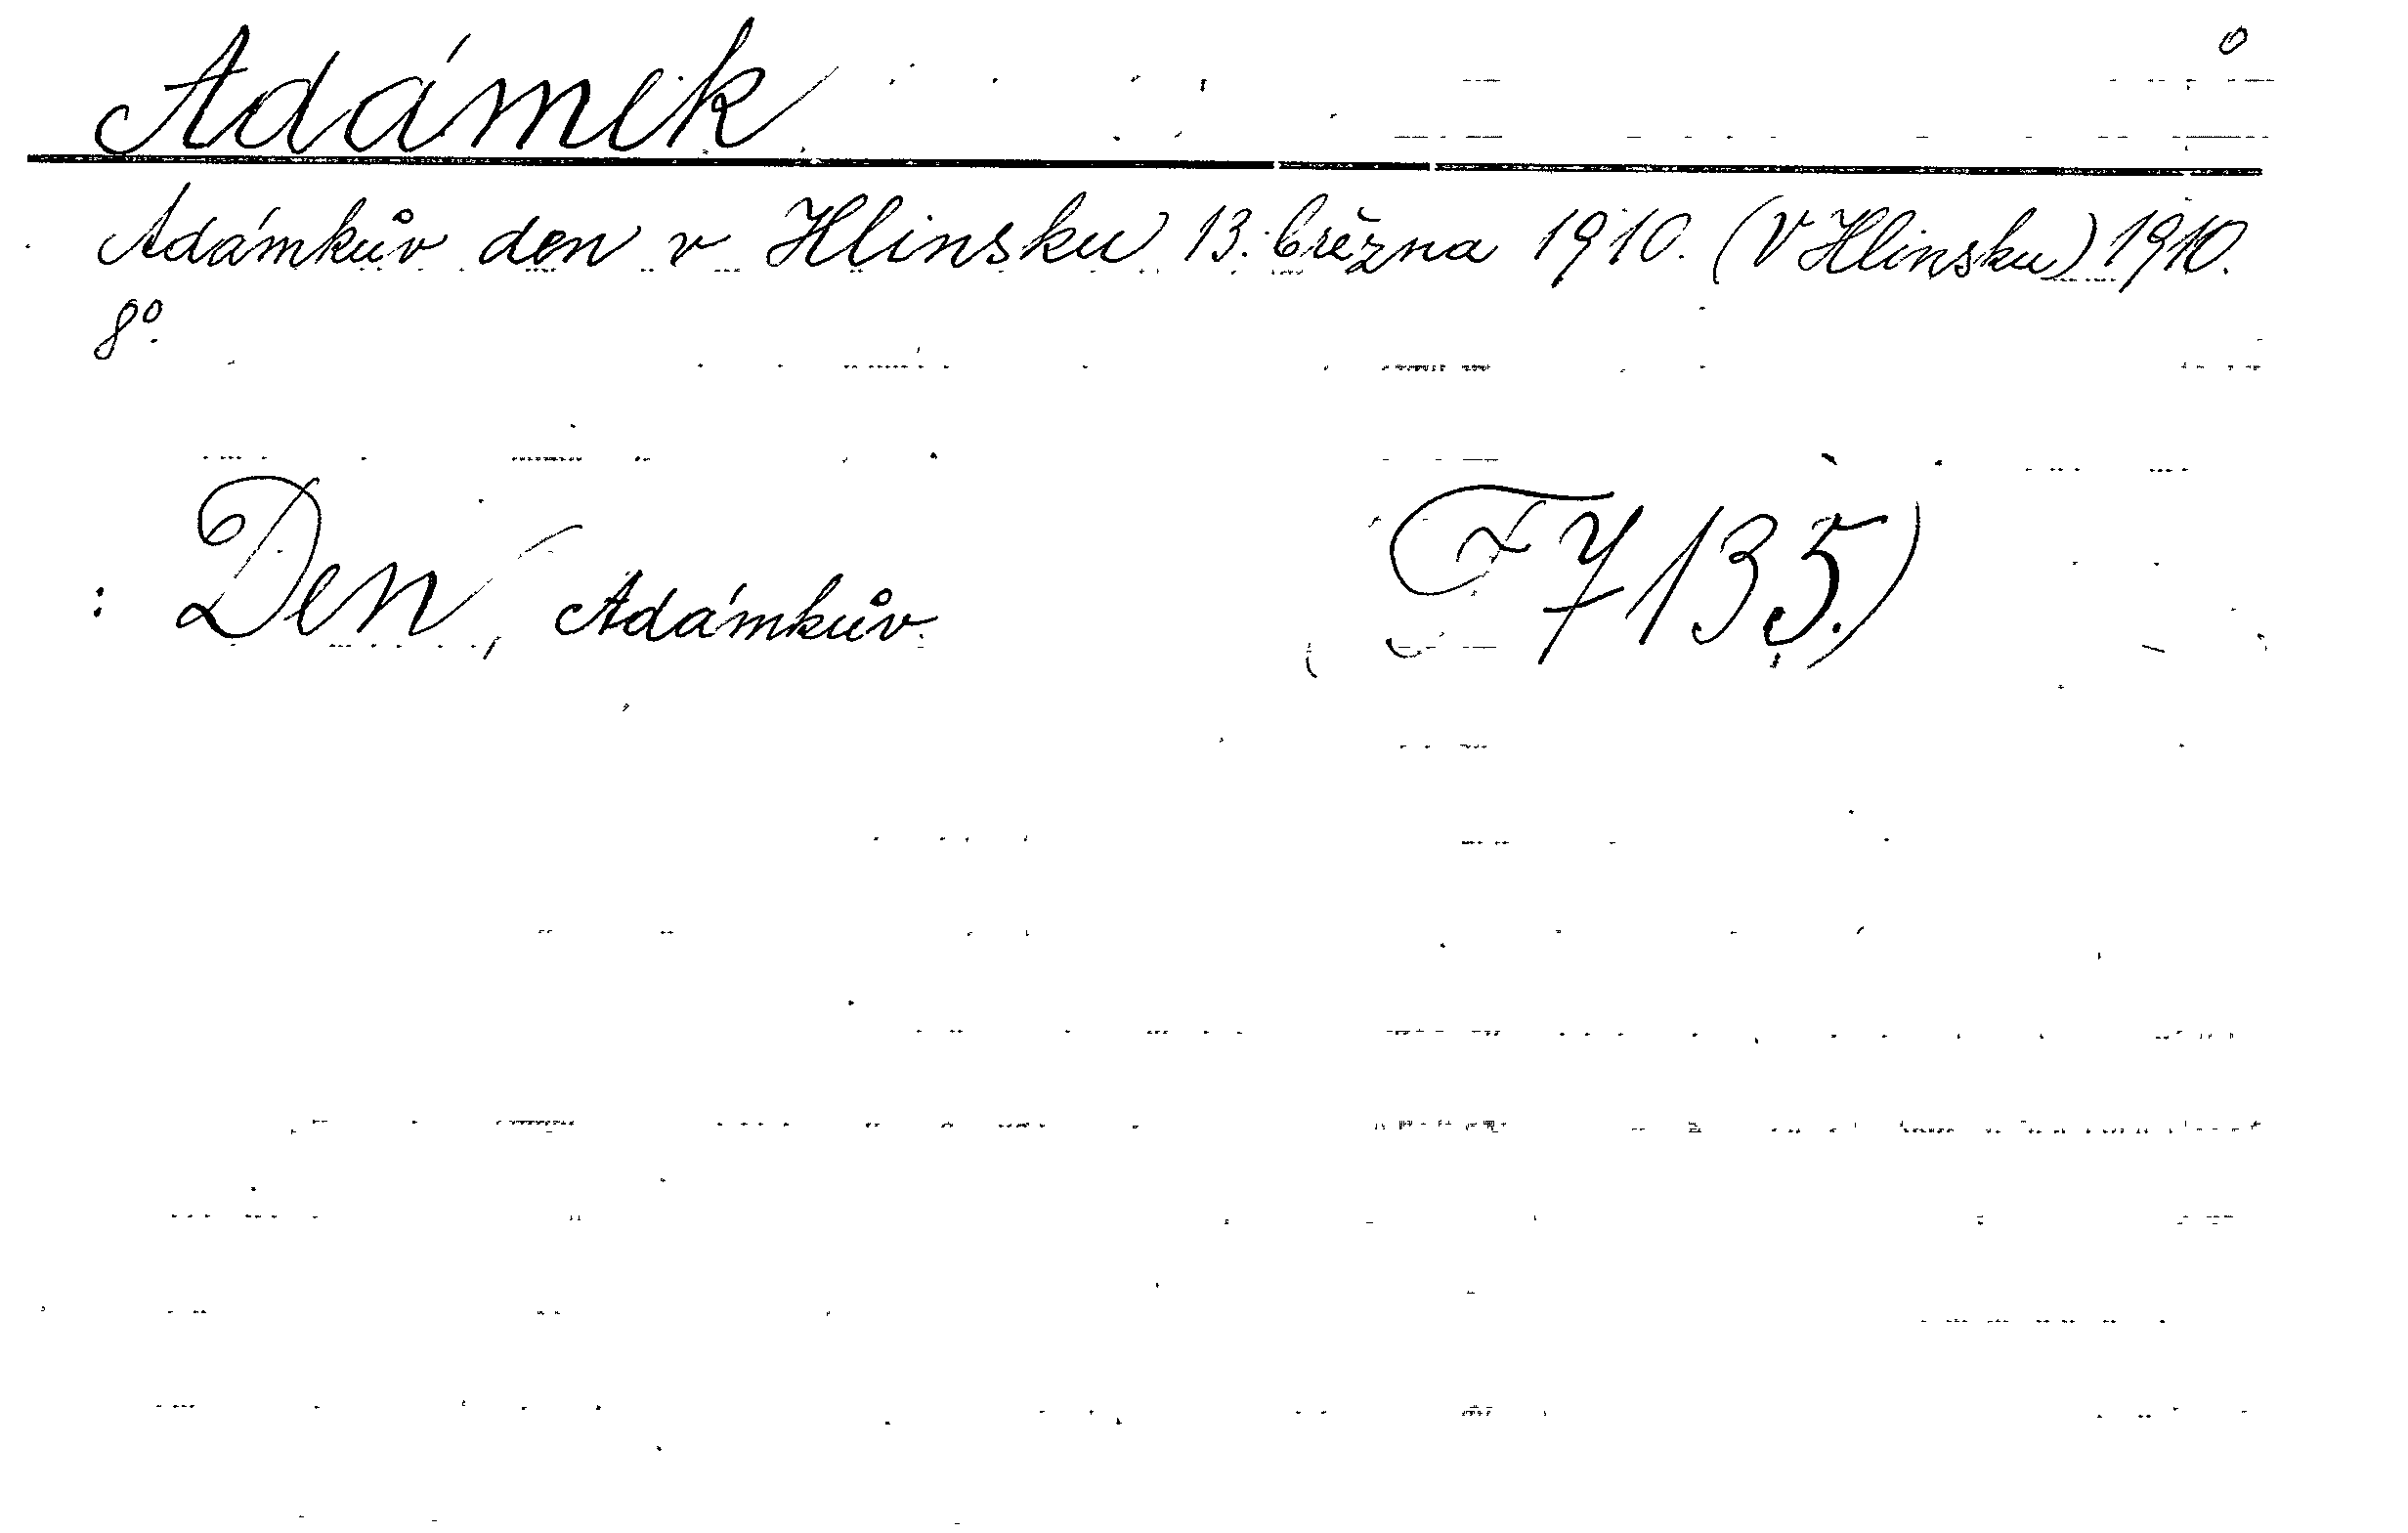 Adámek
Adámkův den v Hlinsku 13. března 1910. (V Hlinsku) 1910.
8°.
: Den, Adámkův.
F 7135.)